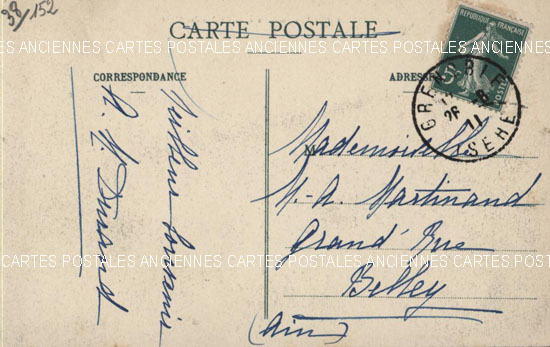 38/152
CARTE POSTALE
CARTES POSTALES ANCIENNES CARTES POSTALES ANCIENNES CARTES POSTALES ANCIENNES
CORRESPONDANCE
ADRESSE
REPUBLIQUE FRANÇAISE
5c
POSTES
GRENOBLE
26 -8
11
ISERE
Meilleur souvenir
M Durand
Mademoiselle
M.-A. Martinand
Grand' Rue
Belley
(Ain)
CARTES POSTALES ANCIENNES CARTES POSTALES ANCIENNES CARTES POSTALES ANCIENNES